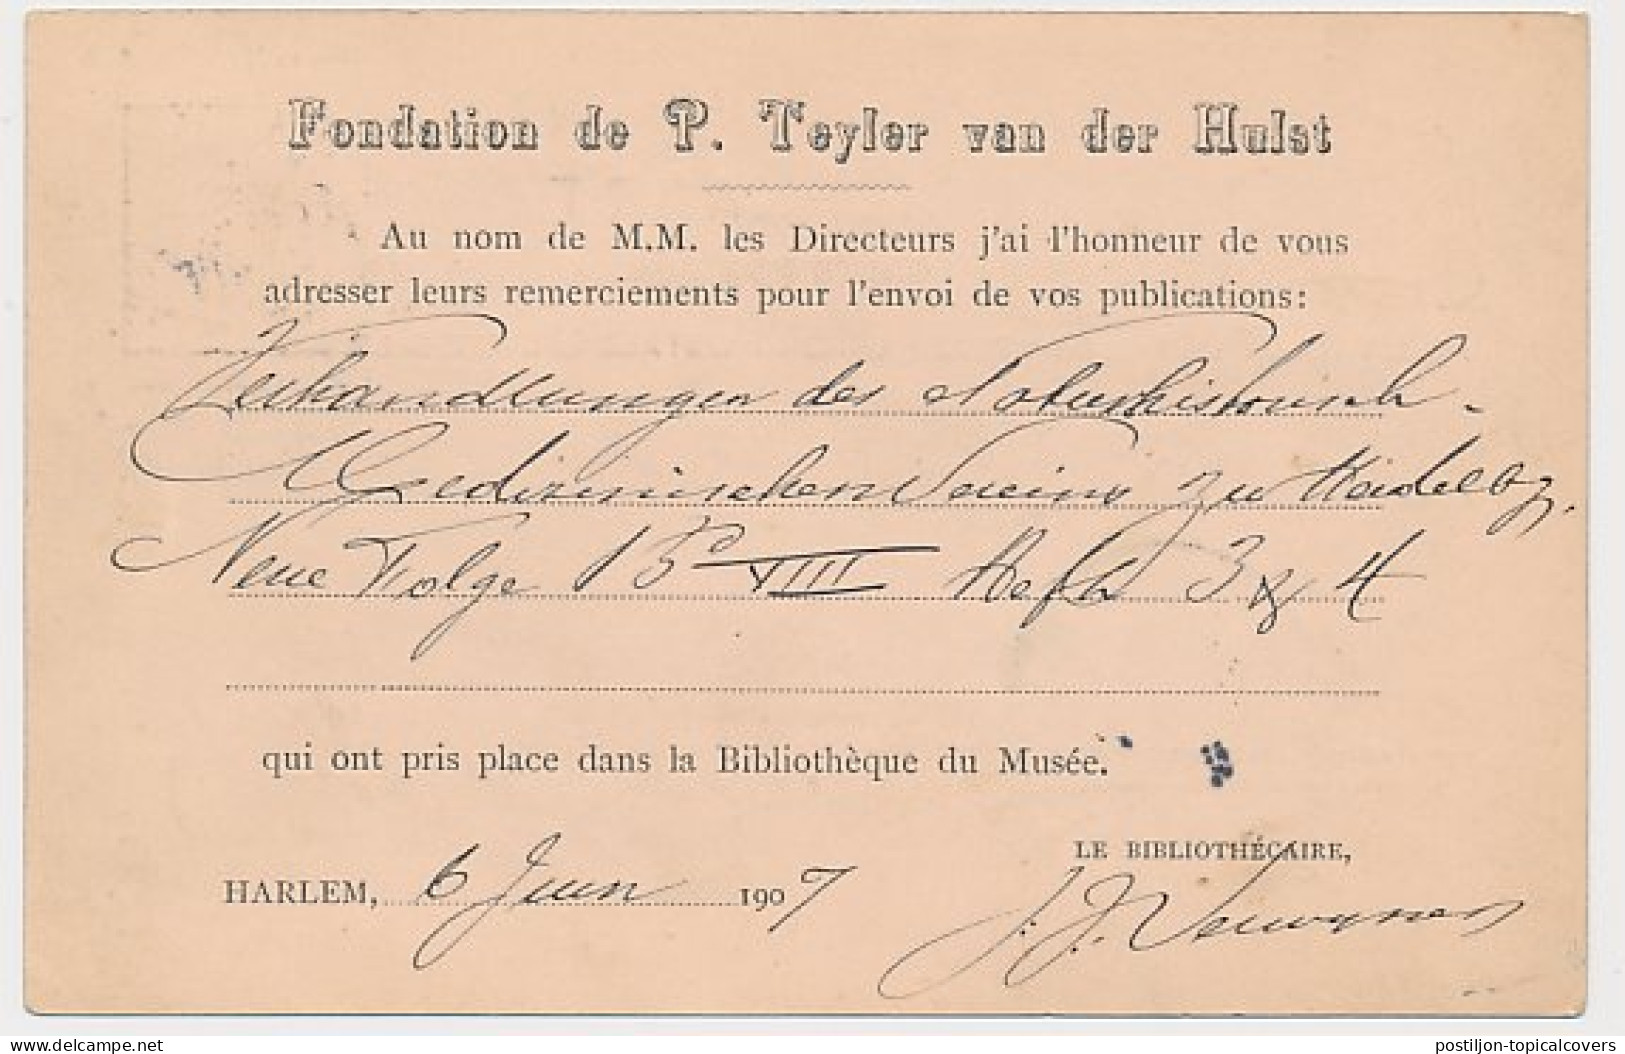 Fondation de P. Teyler van der Hulst
Au nom de M.M. les Directeurs j'ai l'honneur de vous
adresser leurs remerciements pour l'envoi de vos publications:
Verhandlungen des Naturhistorisch-
Medizinischen Vereins zu Heidelbg.
Neue Folge Bd VIII Heft 3 & 4
qui ont pris place dans la Bibliothèque du Musée.
LE BIBLIOTHÉCAIRE,
HARLEM, 6 Juin 1907
J. J.
delcampe.net
postiljon-topicalcovers